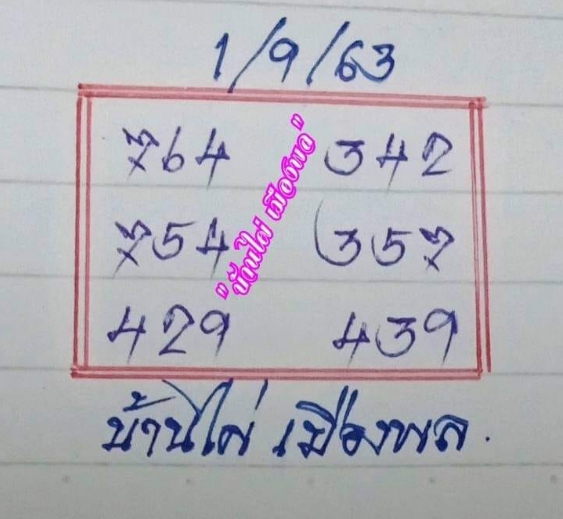 1/9/63
764 342
754 357
429 439
"บ้านไผ่ เมืองพล"
บ้านไผ่ เมืองพล.